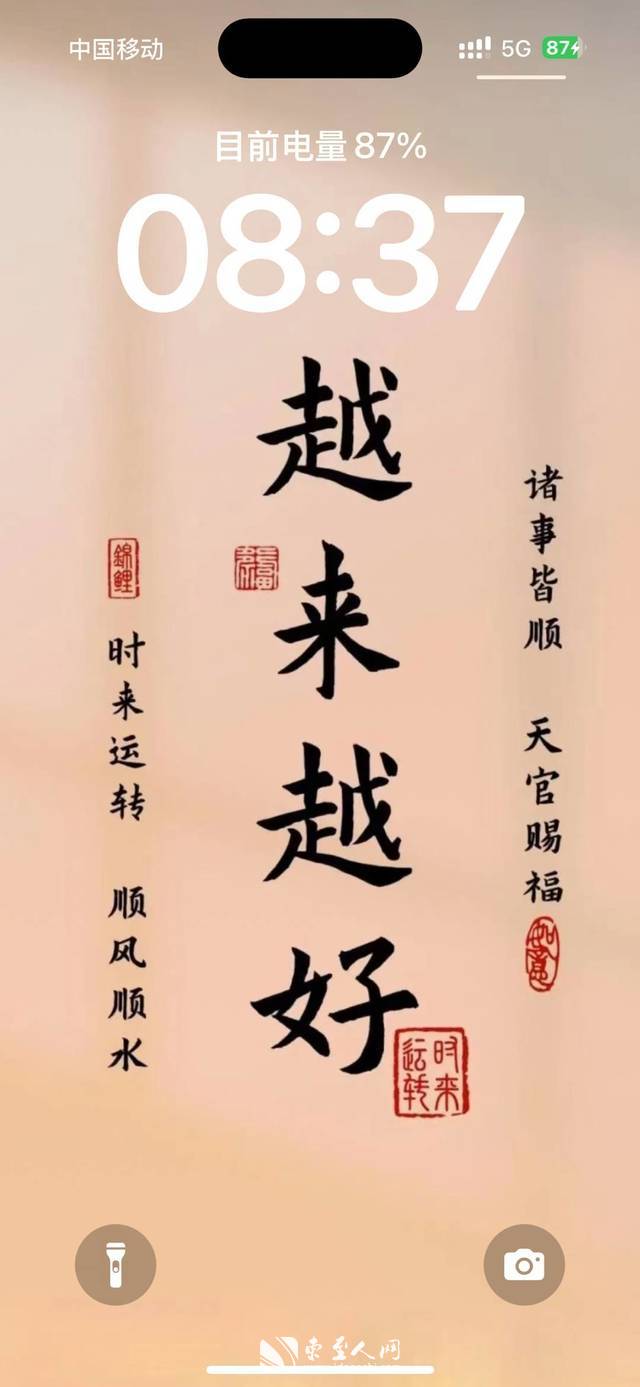 中国移动
5G
87
目前电量 87%
08:37
越来越好
诸事皆顺 天官赐福
如意
锦鲤
时来运转 顺风顺水
时来运转
东至人网